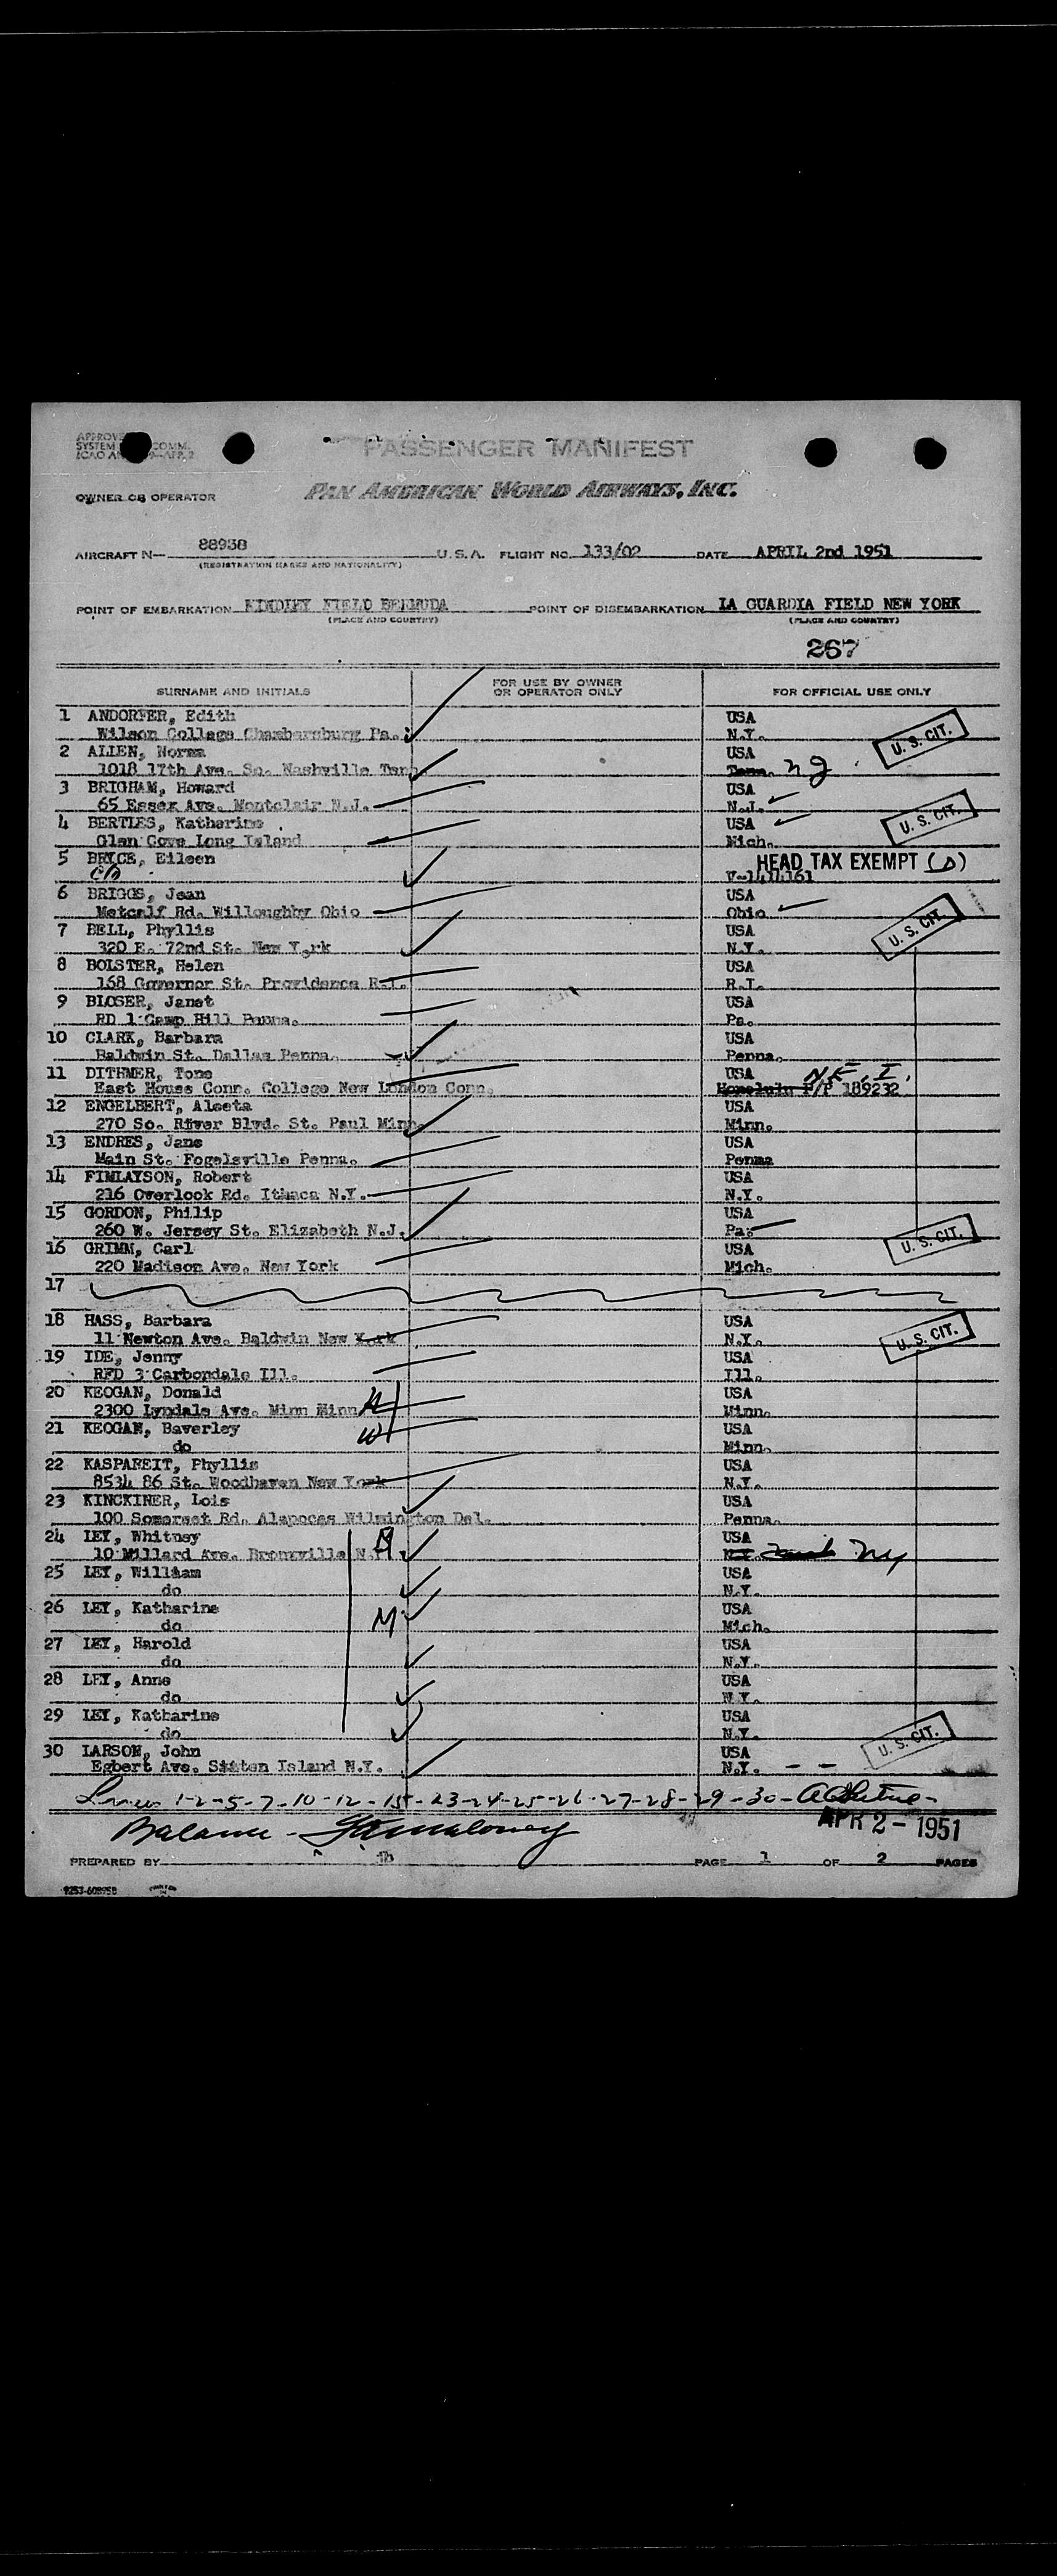 PASSENGER MANIFEST
OWNER OR OPERATOR PAN AMERICAN WORLD AIRWAYS, INC.
AIRCRAFT N— 88958 U.S.A. FLIGHT NO. 133/02 DATE APRIL 2nd 1951
(REGISTRATION MARKS AND NATIONALITY)
POINT OF EMBARKATION KINDLEY FIELD BERMUDA POINT OF DISEMBARKATION LA GUARDIA FIELD NEW YORK
(PLACE AND COUNTRY) (PLACE AND COUNTRY)
267
SURNAME AND INITIALS FOR USE BY OWNER OR OPERATOR ONLY FOR OFFICIAL USE ONLY
1 ANDORFER, Edith USA
Wilson College Chambersburg Pa. N.Y. U.S. CIT.
2 ALLEN, Norma USA
1018 17th Ave. So. Nashville Tenn Tenn. NJ
3 BRIGHAM, Howard USA
65 Essex Ave. Montclair N.J. N.J.
4 BERTLES, Katharine USA U.S. CIT.
Glen Cove Long Island Mich.
5 BRYCE, Eileen HEAD TAX EXEMPT
V-1414161
6 BRIGGS, Jean USA
Metcalf Rd. Willoughby Ohio Ohio
7 BELL, Phyllis USA U.S. CIT.
320 E. 72nd St. New York N.Y.
8 BOLSTER, Helen USA
168 Governor St. Providence R.I. R.I.
9 BLOSER, Janet USA
RD 1 Camp Hill Penna. Pa.
10 CLARK, Barbara USA
Baldwin St. Dallas Penna. Penna.
11 DITHMER, Tone USA N.E.I.
East House Conn. College New London Conn. Honolulu P/P 189232
12 ENGELBERT, Aleeta USA
270 So. River Blvd. St. Paul Minn. Minn.
13 ENDRES, Jane USA
Main St. Fogelsville Penna. Penna
14 FINLAYSON, Robert USA
216 Overlook Rd. Ithaca N.Y. N.Y.
15 GORDON, Philip USA
260 W. Jersey St. Elizabeth N.J. Pa.
16 GRIMM, Carl USA U.S. CIT.
220 Madison Ave. New York Mich.
17
18 HASS, Barbara USA
11 Newton Ave. Baldwin New York N.Y. U.S. CIT.
19 IDE, Jenny USA
RFD 3 Carbondale Ill. Ill.
20 KEOGAN, Donald USA
2300 Lyndale Ave. Minn Minn H Minn.
21 KEOGAN, Baverley USA
do W Minn.
22 KASPAREIT, Phyllis USA
8534 86 St. Woodhaven New York N.Y.
23 KINCKINER, Lois USA
100 Somerset Rd. Alapocas Wilmington Del. Penna.
24 LEY, Whitney USA
10 Millard Ave. Bronxville N.Y. N.Y. NY
25 LEY, William USA
do N.Y.
26 LEY, Katharine USA
do M Mich.
27 LEY, Harold USA
do N.Y.
28 LEY, Anne USA
do N.Y.
29 LEY, Katharine USA
do N.Y.
30 LARSON, John USA U.S. CIT.
Egbert Ave. Staten Island N.Y. N.Y.
Lines 1-2-5-7-10-12-15-23-24-25-26-27-28-29-30-
Balance -
APR 2 - 1951
PREPARED BY PAGE 1 OF 2 PAGES